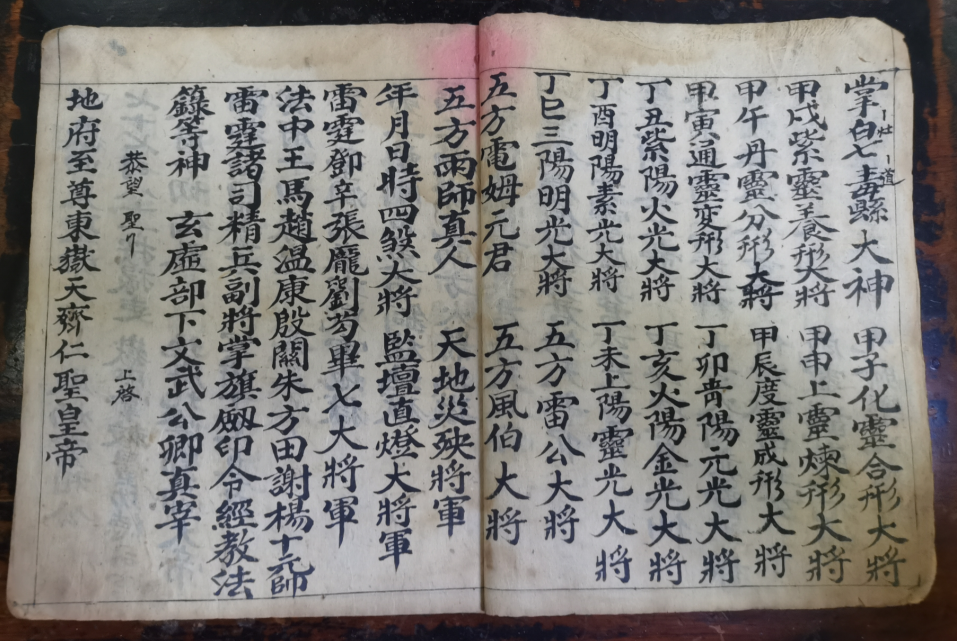 掌皂纛大神 甲子化靈合形大將
一灶 一道
甲戌紫靈養形大將 甲申上靈煉形大將
甲午丹靈分形大將 甲辰度靈成形大將
甲寅通靈变形大將 丁卯青陽元光大將
丁丑紫陽火光大將 丁亥火陽金光大將
丁酉明陽素光大將 丁未上陽靈光大將
丁巳三陽明光大將 五方雷公大將
五方電姆元君 五方風伯大將
五方雨師真人 天地災殃將軍
年月日時四煞大將 監壇直燈大將軍
雷霆鄧辛張龐劉苟畢七大將軍
法中王馬趙溫康殷關朱方田謝楊十元帥
雷霆諸司精兵副將掌旗劔印令經教法
籙等神 玄虛部下文武公卿真宰
恭望 聖 上啓
地府至尊東嶽天齊仁聖皇帝